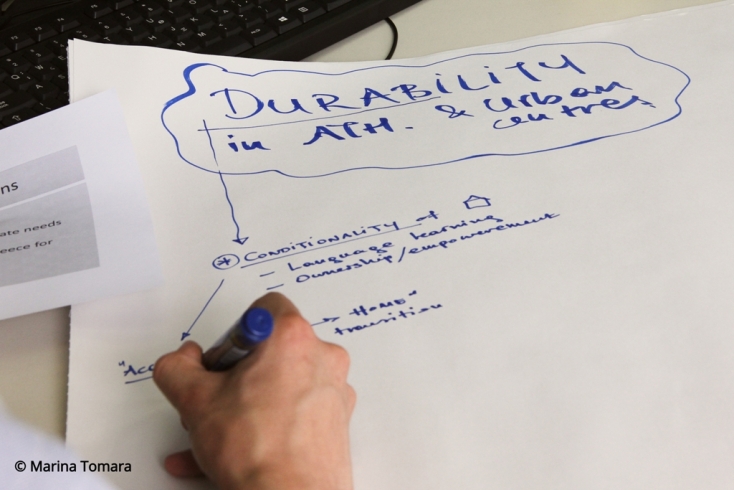 DURABILITY
in ATH. & Urban
centres
* CONDITIONALITY of
- Language learning
- Ownership/empowerement
→ HOME"
transition
"Acc
ns
ate needs
eece for
© Marina Tomara